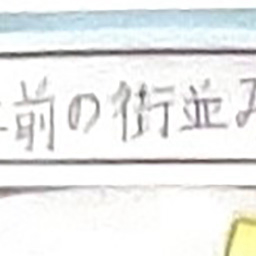 前の街並み